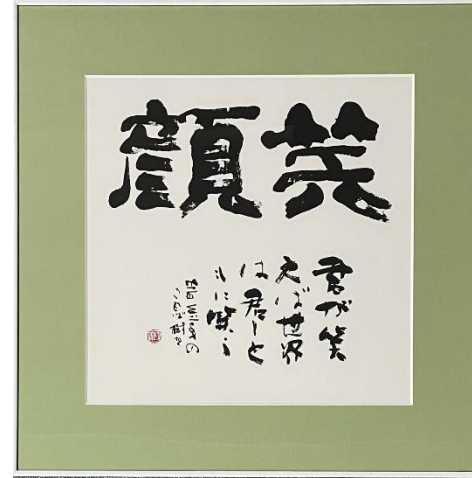 笑顔
君が笑
えば世界
は君とと
もに笑う
Ella Wilcox の